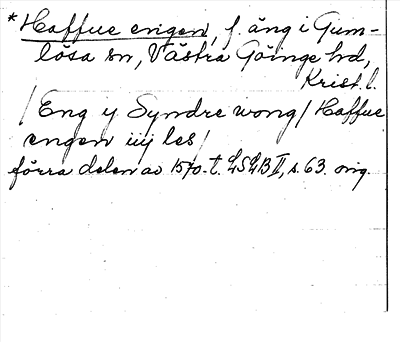 * Haffue engen, f. äng i Gum-
lösa sn, Västra Göinge hd,
Krist. l.
/Eng y Syndre wong/ Haffue
engen iiij les/
förra delen av 1570-t. LSLB II, s. 63. orig.